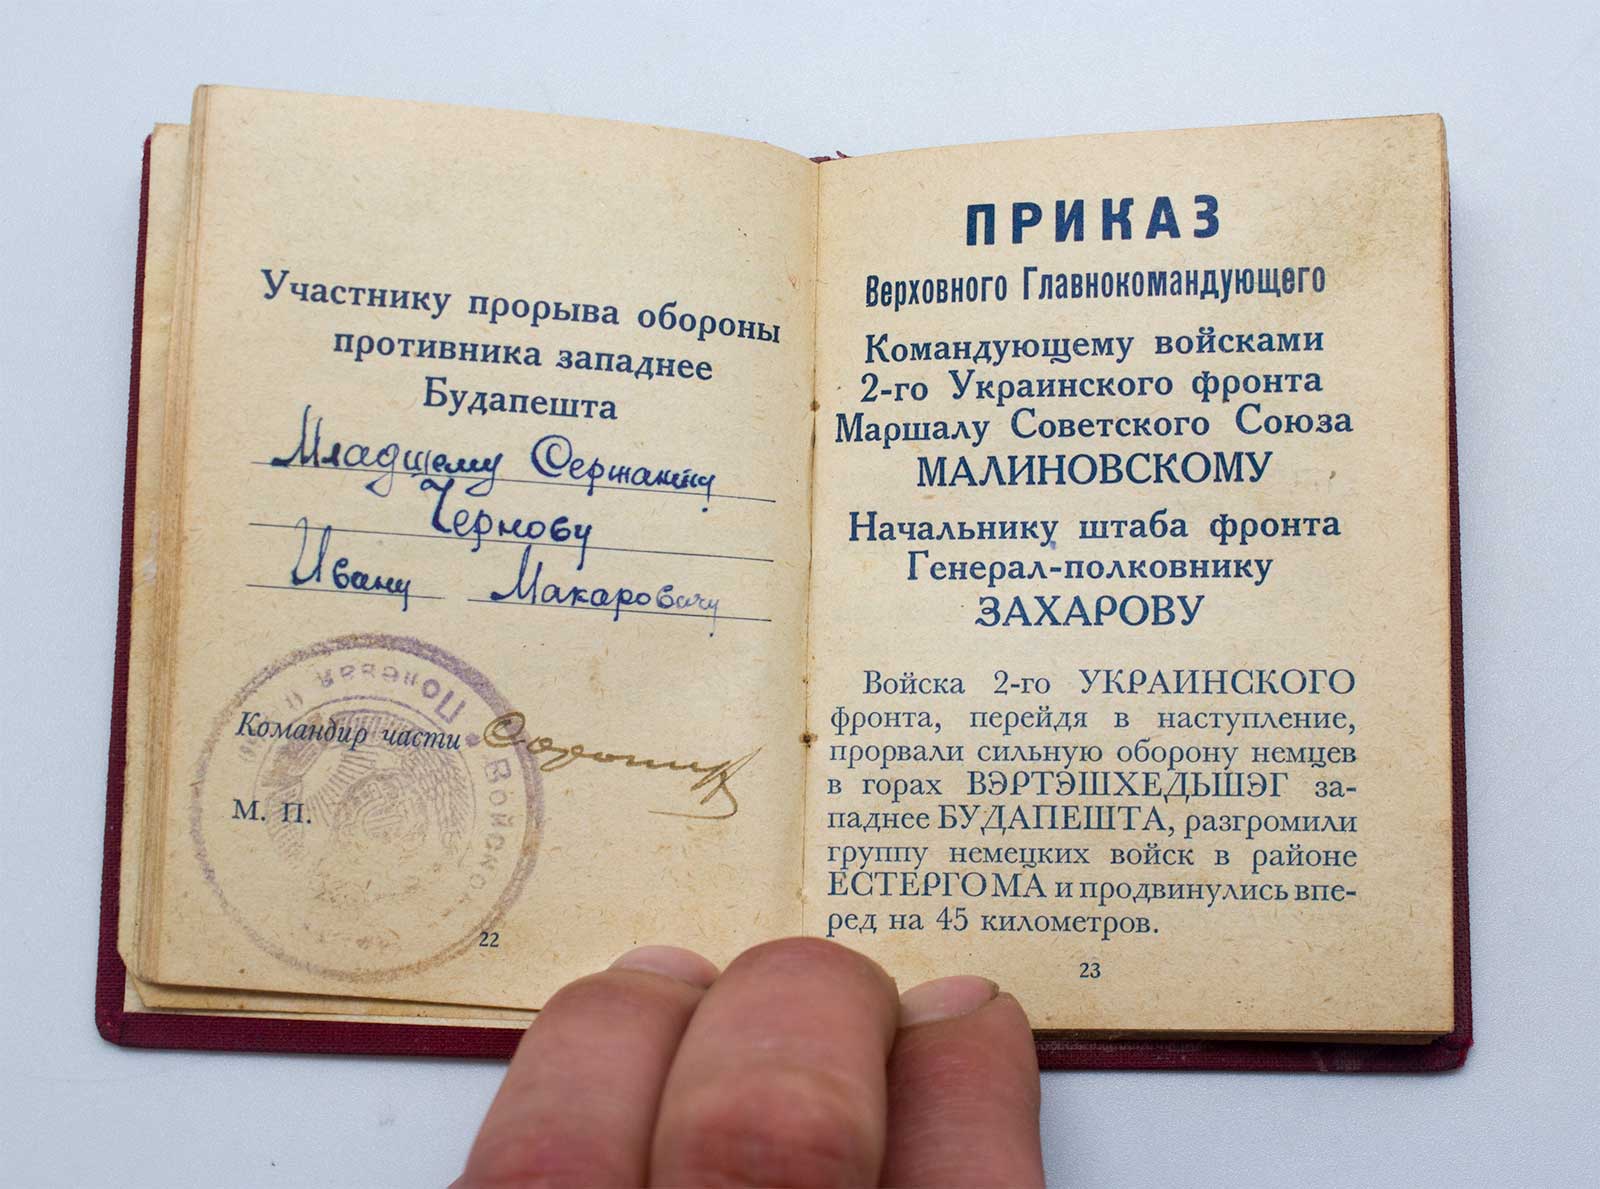 Участнику прорыва обороны
противника западнее
Будапешта
Младшему Сержанту
Чернову
Ивану Макаровичу
Командир части
М. П.
Полевая
Войсков
22
ПРИКАЗ
Верховного Главнокомандующего
Командующему войсками
2-го Украинского фронта
Маршалу Советского Союза
МАЛИНОВСКОМУ
Начальнику штаба фронта
Генерал-полковнику
ЗАХАРОВУ
Войска 2-го УКРАИНСКОГО
фронта, перейдя в наступление,
прорвали сильную оборону немцев
в горах ВЭРТЭШХЕДЬШЭГ за-
паднее БУДАПЕШТА, разгромили
группу немецких войск в районе
ЕСТЕРГОМА и продвинулись впе-
ред на 45 километров.
23